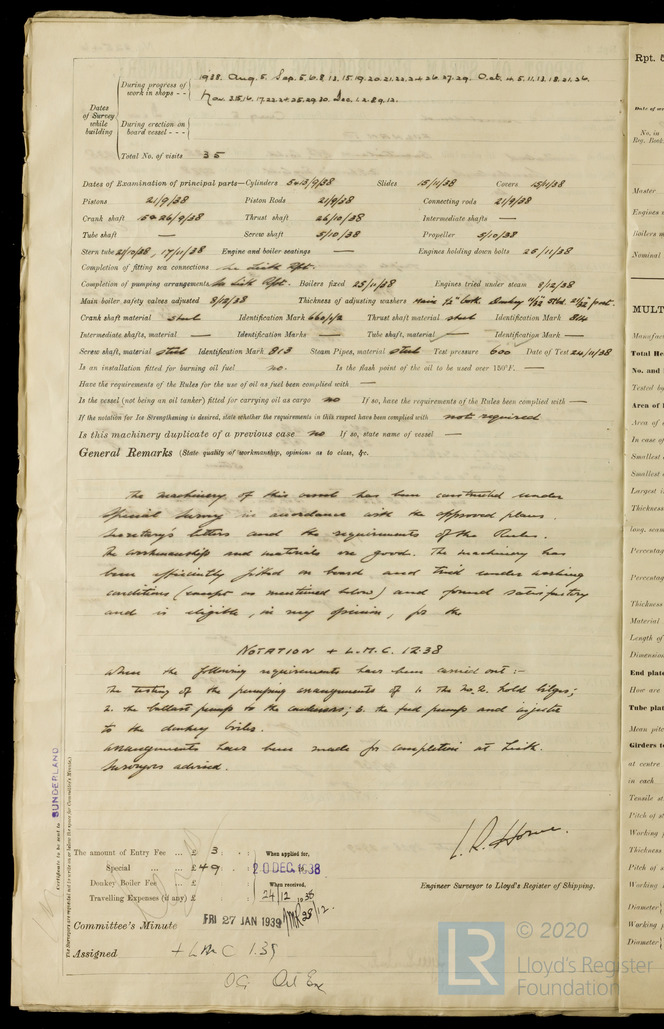 Dates of Survey while building
During progress of work in shops - - 1938. Aug. 5. Sep. 5. 6. 8. 13. 15. 19. 20. 21. 22. 24. 26. 27. 29. Oct. 4. 5. 11. 13. 18. 21. 26.
Nov. 2. 5. 16. 17. 22. 24. 25. 29. 30. Dec. 1. 2. 8. 9. 12.
During erection on board vessel - - -
Total No. of visits 35
Dates of Examination of principal parts—Cylinders 5&13/9/38 Slides 15/11/38 Covers 15/11/38
Pistons 21/9/38 Piston Rods 21/9/38 Connecting rods 21/9/38
Crank shaft 15&26/9/38 Thrust shaft 26/10/38 Intermediate shafts —
Tube shaft — Screw shaft 5/10/38 Propeller 5/10/38
Stern tube 21/10/38, 17/11/38 Engine and boiler seatings — Engines holding down bolts 25/11/38
Completion of fitting sea connections In Lith Rpt.
Completion of pumping arrangements In Lith Rpt. Boilers fixed 25/11/38 Engines tried under steam 8/12/38
Main boiler safety valves adjusted 8/12/38 Thickness of adjusting washers Main ½" both Donkey
Crank shaft material steel Identification Mark Thrust shaft material steel Identification Mark 814
Intermediate shafts, material — Identification Marks — Tube shaft, material — Identification Mark —
Screw shaft, material steel Identification Mark 813 Steam Pipes, material steel Test pressure 600 Date of Test 24/11/38
Is an installation fitted for burning oil fuel no. Is the flash point of the oil to be used over 150°F. —
Have the requirements of the Rules for the use of oil as fuel been complied with —
Is the vessel (not being an oil tanker) fitted for carrying oil as cargo no If so, have the requirements of the Rules been complied with —
If the notation for Ice Strengthening is desired, state whether the requirements in this respect have been complied with not required
Is this machinery duplicate of a previous case no If so, state name of vessel —
General Remarks (State quality of workmanship, opinions as to class, &c.
The machinery of this vessel has been constructed under
Special Survey in accordance with the approved plans.
Secretary's letters and the requirements of the Rules.
The workmanship and materials are good. The machinery has
been efficiently fitted on board and tried under working
conditions (except as mentioned below) and found satisfactory
and is eligible, in my opinion, for the
NOTATION + L.M.C. 12.38
when the following requirements have been carried out :-
The testing of the pumping arrangements of 1. The No. 2. hold bilges;
2. the ballast pump to the condensers; 3. the feed pumps and injector
to the donkey boiler.
Arrangements have been made for completion at Lith.
Surveyors advised.
Certificate to be sent to SUNDERLAND.
(The Surveyors are requested not to write on or below the space for Committee's Minute.)
The amount of Entry Fee ... £ 3 : : When applied for,
Special ... ... £ 49 : : 20 DEC. 1938
Donkey Boiler Fee ... £ : : When received,
Travelling Expenses (if any) £ : : 24/12 1938
28/12.
Engineer Surveyor to Lloyd's Register of Shipping.
Committee's Minute FRI 27 JAN 1939
Assigned + LMC 1.39
Rpt. 5
Date of
No. in
Reg. Book
Master
Engines
Boilers m
Nominal
MULT
Manufac
Total He
No. and
Tested by
Area of
Area of
In case of
Smallest
Smallest
Largest i
Thickness
long. seam
Percentag
Percentag
Thickness
Material
Length of
Dimension
End plate
How are
Tube plat
Mean pitc
Girders t
at centre
in each
Tensile st
Pitch of st
Working
Thickness
Pitch of s
Working
Diameter
Working p
Diameter
LR © 2020
Lloyd's Register
Foundation